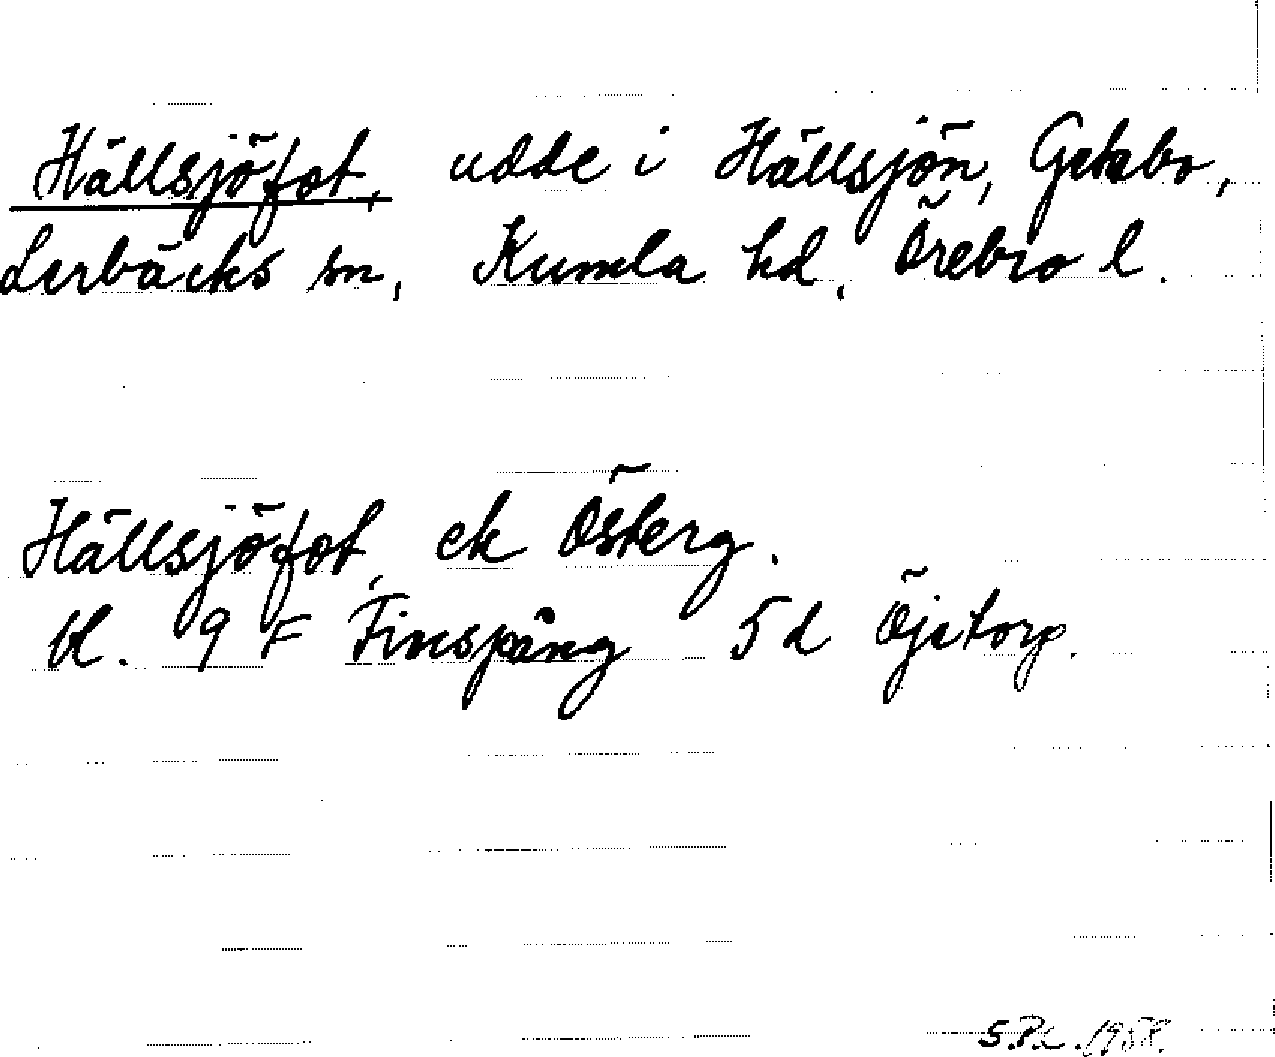 Hällsjöfot, udde i Hällsjön, Getabo,
Lerbäcks sn, Kumla hd, Örebro l.
Hällsjöfot, ek Österg.
bl. 9 F Finspång 5 d Öjetorp.
1958.